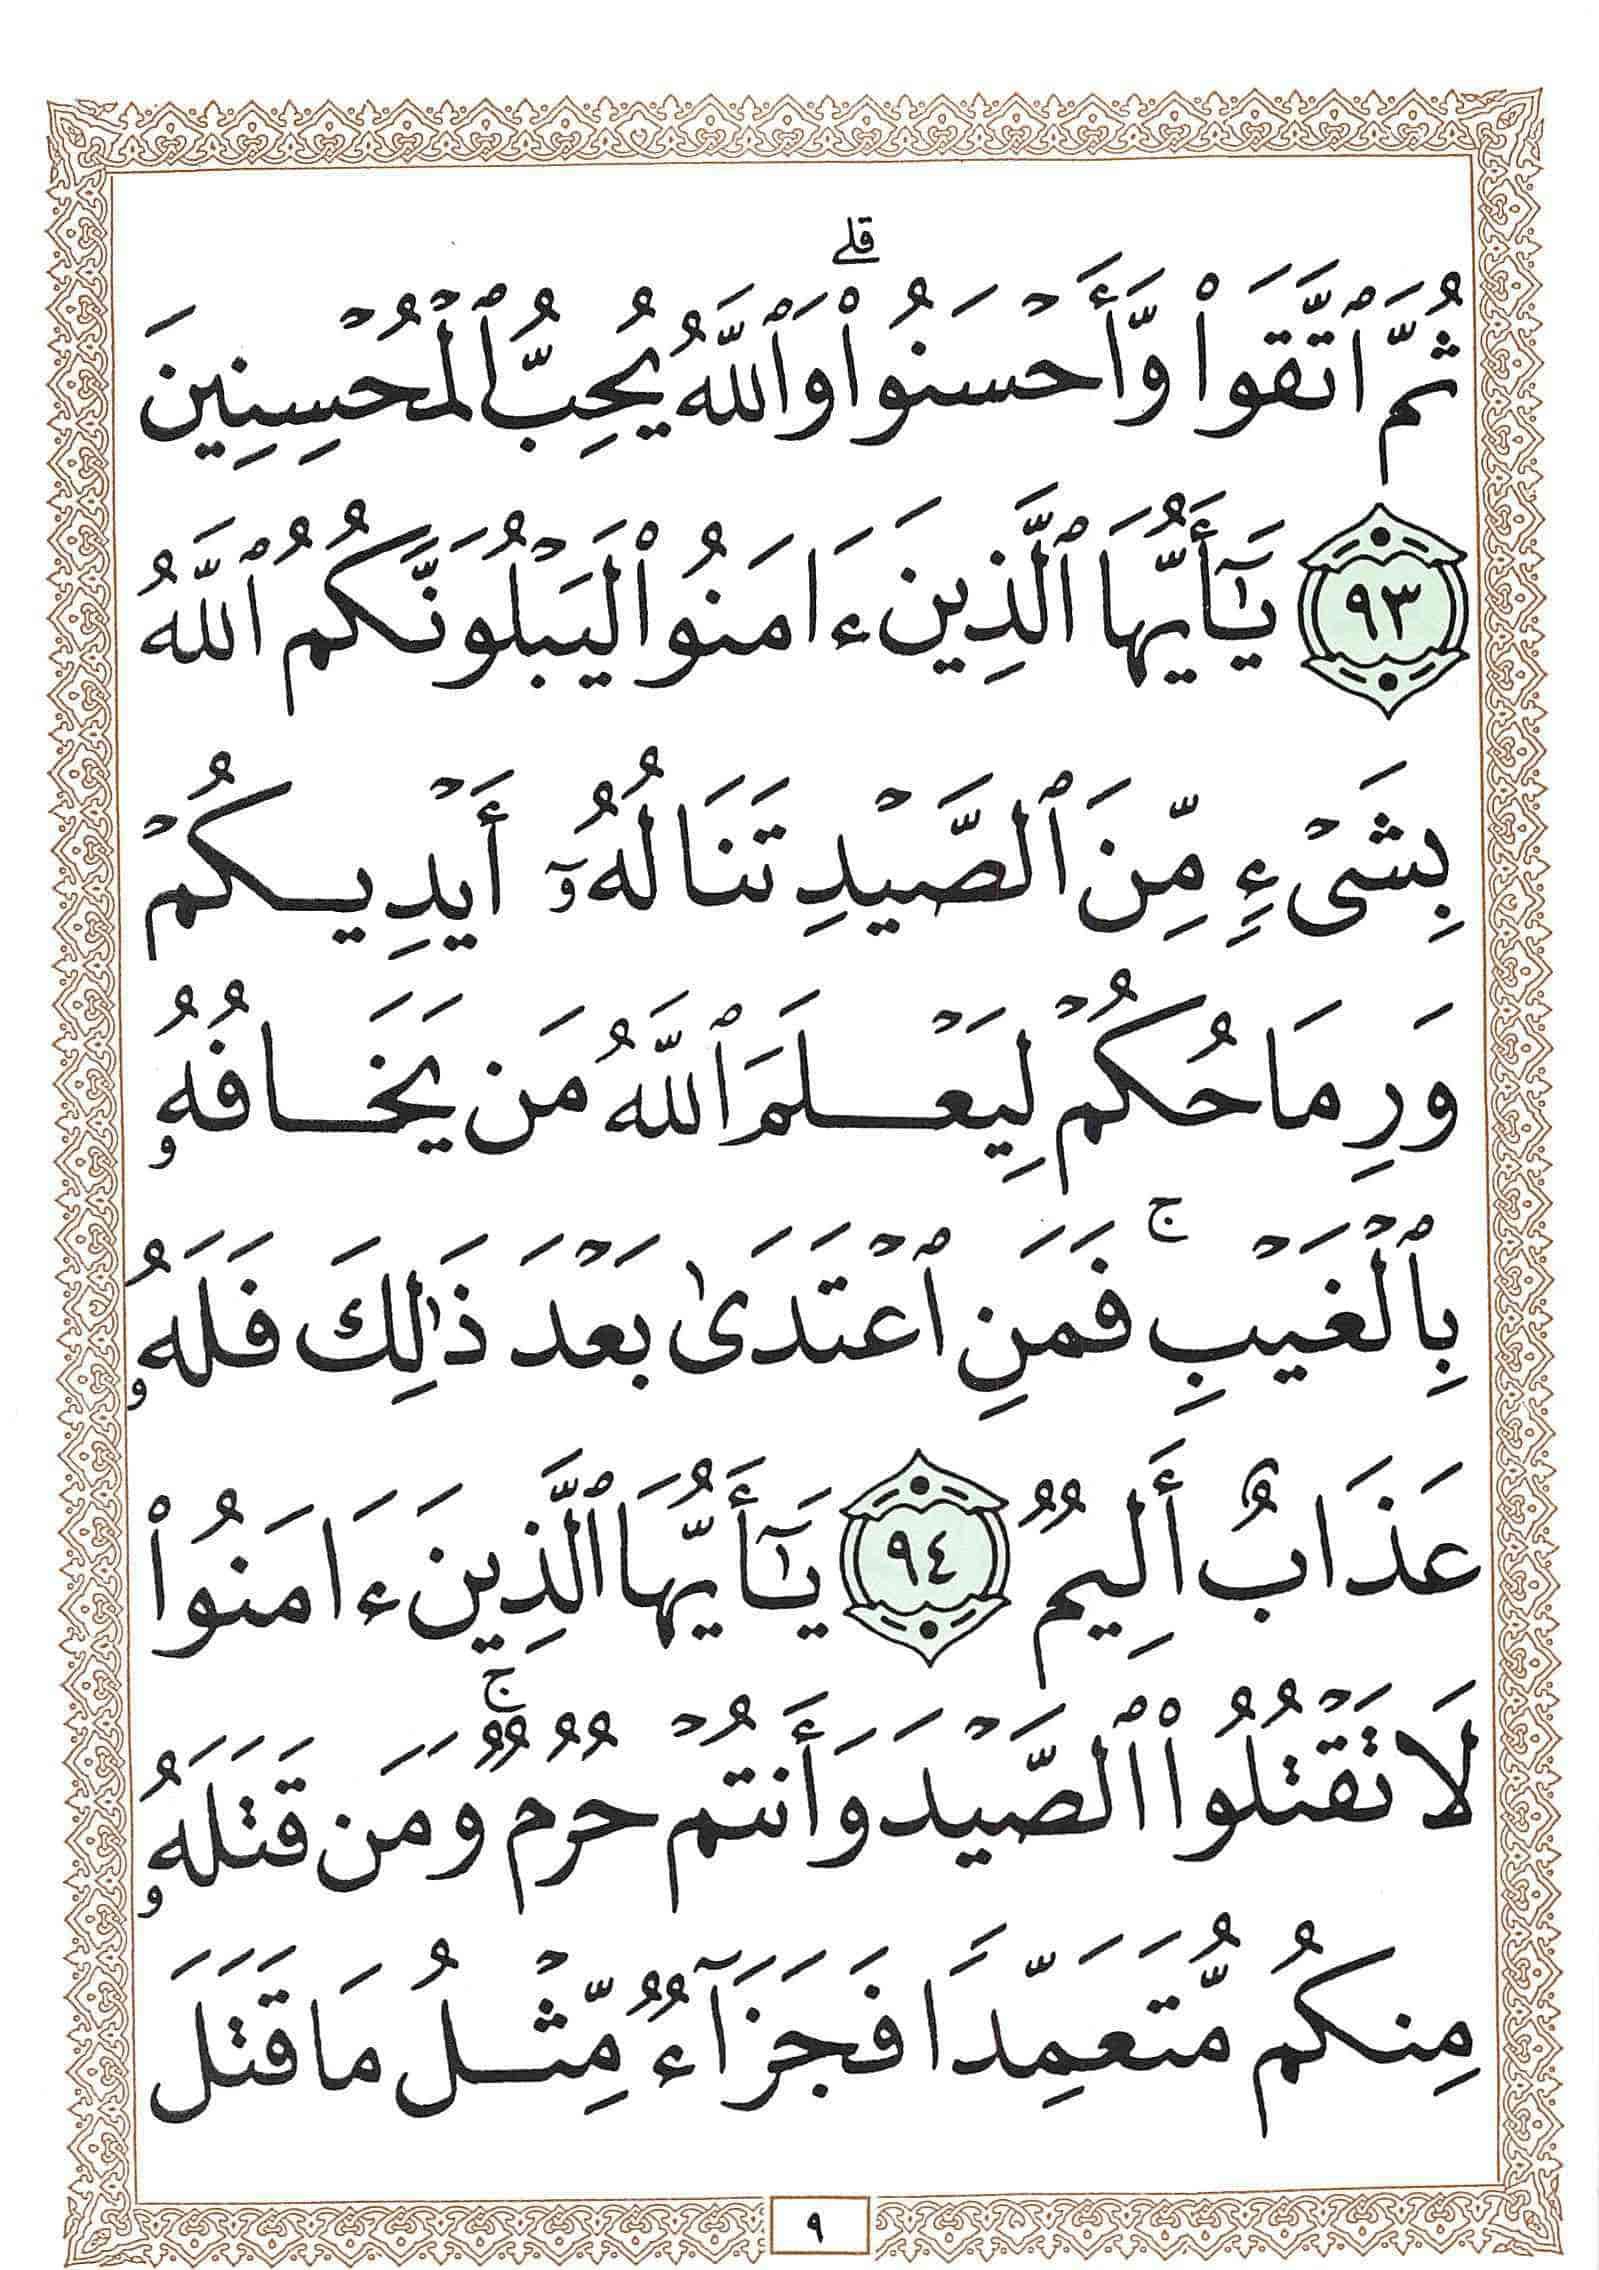 ثُمَّ ٱتَّقَوا۟ وَّأَحۡسَنُوا۟ۗ وَٱللَّهُ يُحِبُّ ٱلۡمُحۡسِنِينَ
٩٣ يَـٰٓأَيُّهَا ٱلَّذِينَ ءَامَنُوا۟ لَيَبۡلُوَنَّكُمُ ٱللَّهُ
بِشَىۡءٍ مِّنَ ٱلصَّيۡدِ تَنَالُهُۥٓ أَيۡدِيكُمۡ
وَرِمَاحُكُمۡ لِيَعۡلَمَ ٱللَّهُ مَن يَخَافُهُۥ
بِٱلۡغَيۡبِۚ فَمَنِ ٱعۡتَدَىٰ بَعۡدَ ذَٰلِكَ فَلَهُۥ
عَذَابٌ أَلِيمٌ ٩٤ يَـٰٓأَيُّهَا ٱلَّذِينَ ءَامَنُوا۟
لَا تَقۡتُلُوا۟ ٱلصَّيۡدَ وَأَنتُمۡ حُرُمٌۚ وَمَن قَتَلَهُۥ
مِنكُم مُّتَعَمِّدًا فَجَزَآءٌ مِّثۡلُ مَا قَتَلَ
٩